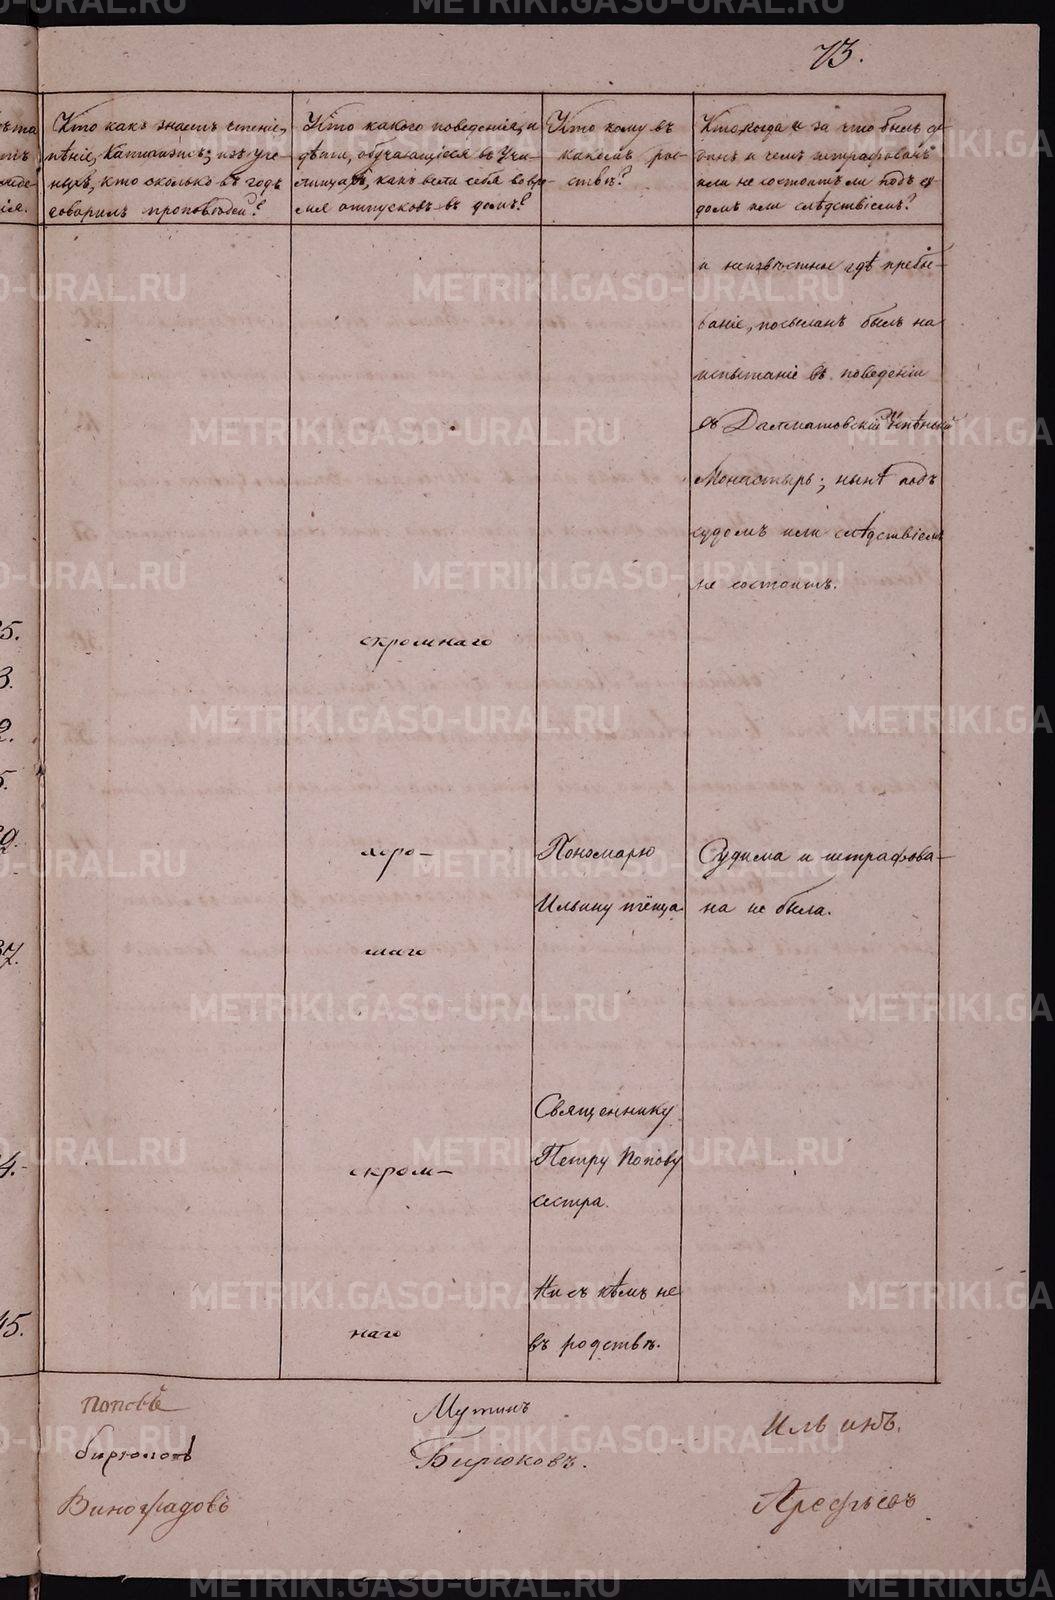 73.
Кто какъ знаетъ чтеніе,
пѣніе, Катихизисъ; изъ уче-
ныхъ, кто сколько въ годъ
говорилъ проповѣдей?
Кто какого поведенія, и
дѣти, обучающіеся въ Учи-
лищахъ, какъ вели себя во вре-
мя отпусковъ въ домъ?
Кто кому въ
какомъ род-
ствѣ?
Кто, когда и за что былъ су-
димъ и чемъ штрафованъ
или не состоитъ ли подъ су-
домъ или слѣдствіемъ?
и неизвѣстное гдѣ пребы-
ваніе, посыланъ былъ на
испытаніе въ поведеніи
въ Далматовскій Успѣнскій
Монастырь; нынѣ подъ
судомъ или слѣдствіемъ
не состоитъ.
5.
скромнаго
3.
2.
5.
9.
хоро-
Пономарю
Судима и штрафова-
Ильину тёща.
на не была.
37.
шаго
Священнику
4.
скром-
Петру Попову
сестра.
Ни съ кѣмъ не
45.
наго
въ родствѣ.
Поповъ
Мутинъ
Ильинъ.
Бирюковъ
Бирюковъ.
Виноградовъ
Арефьевъ
METRIKI.GASO-URAL.RU